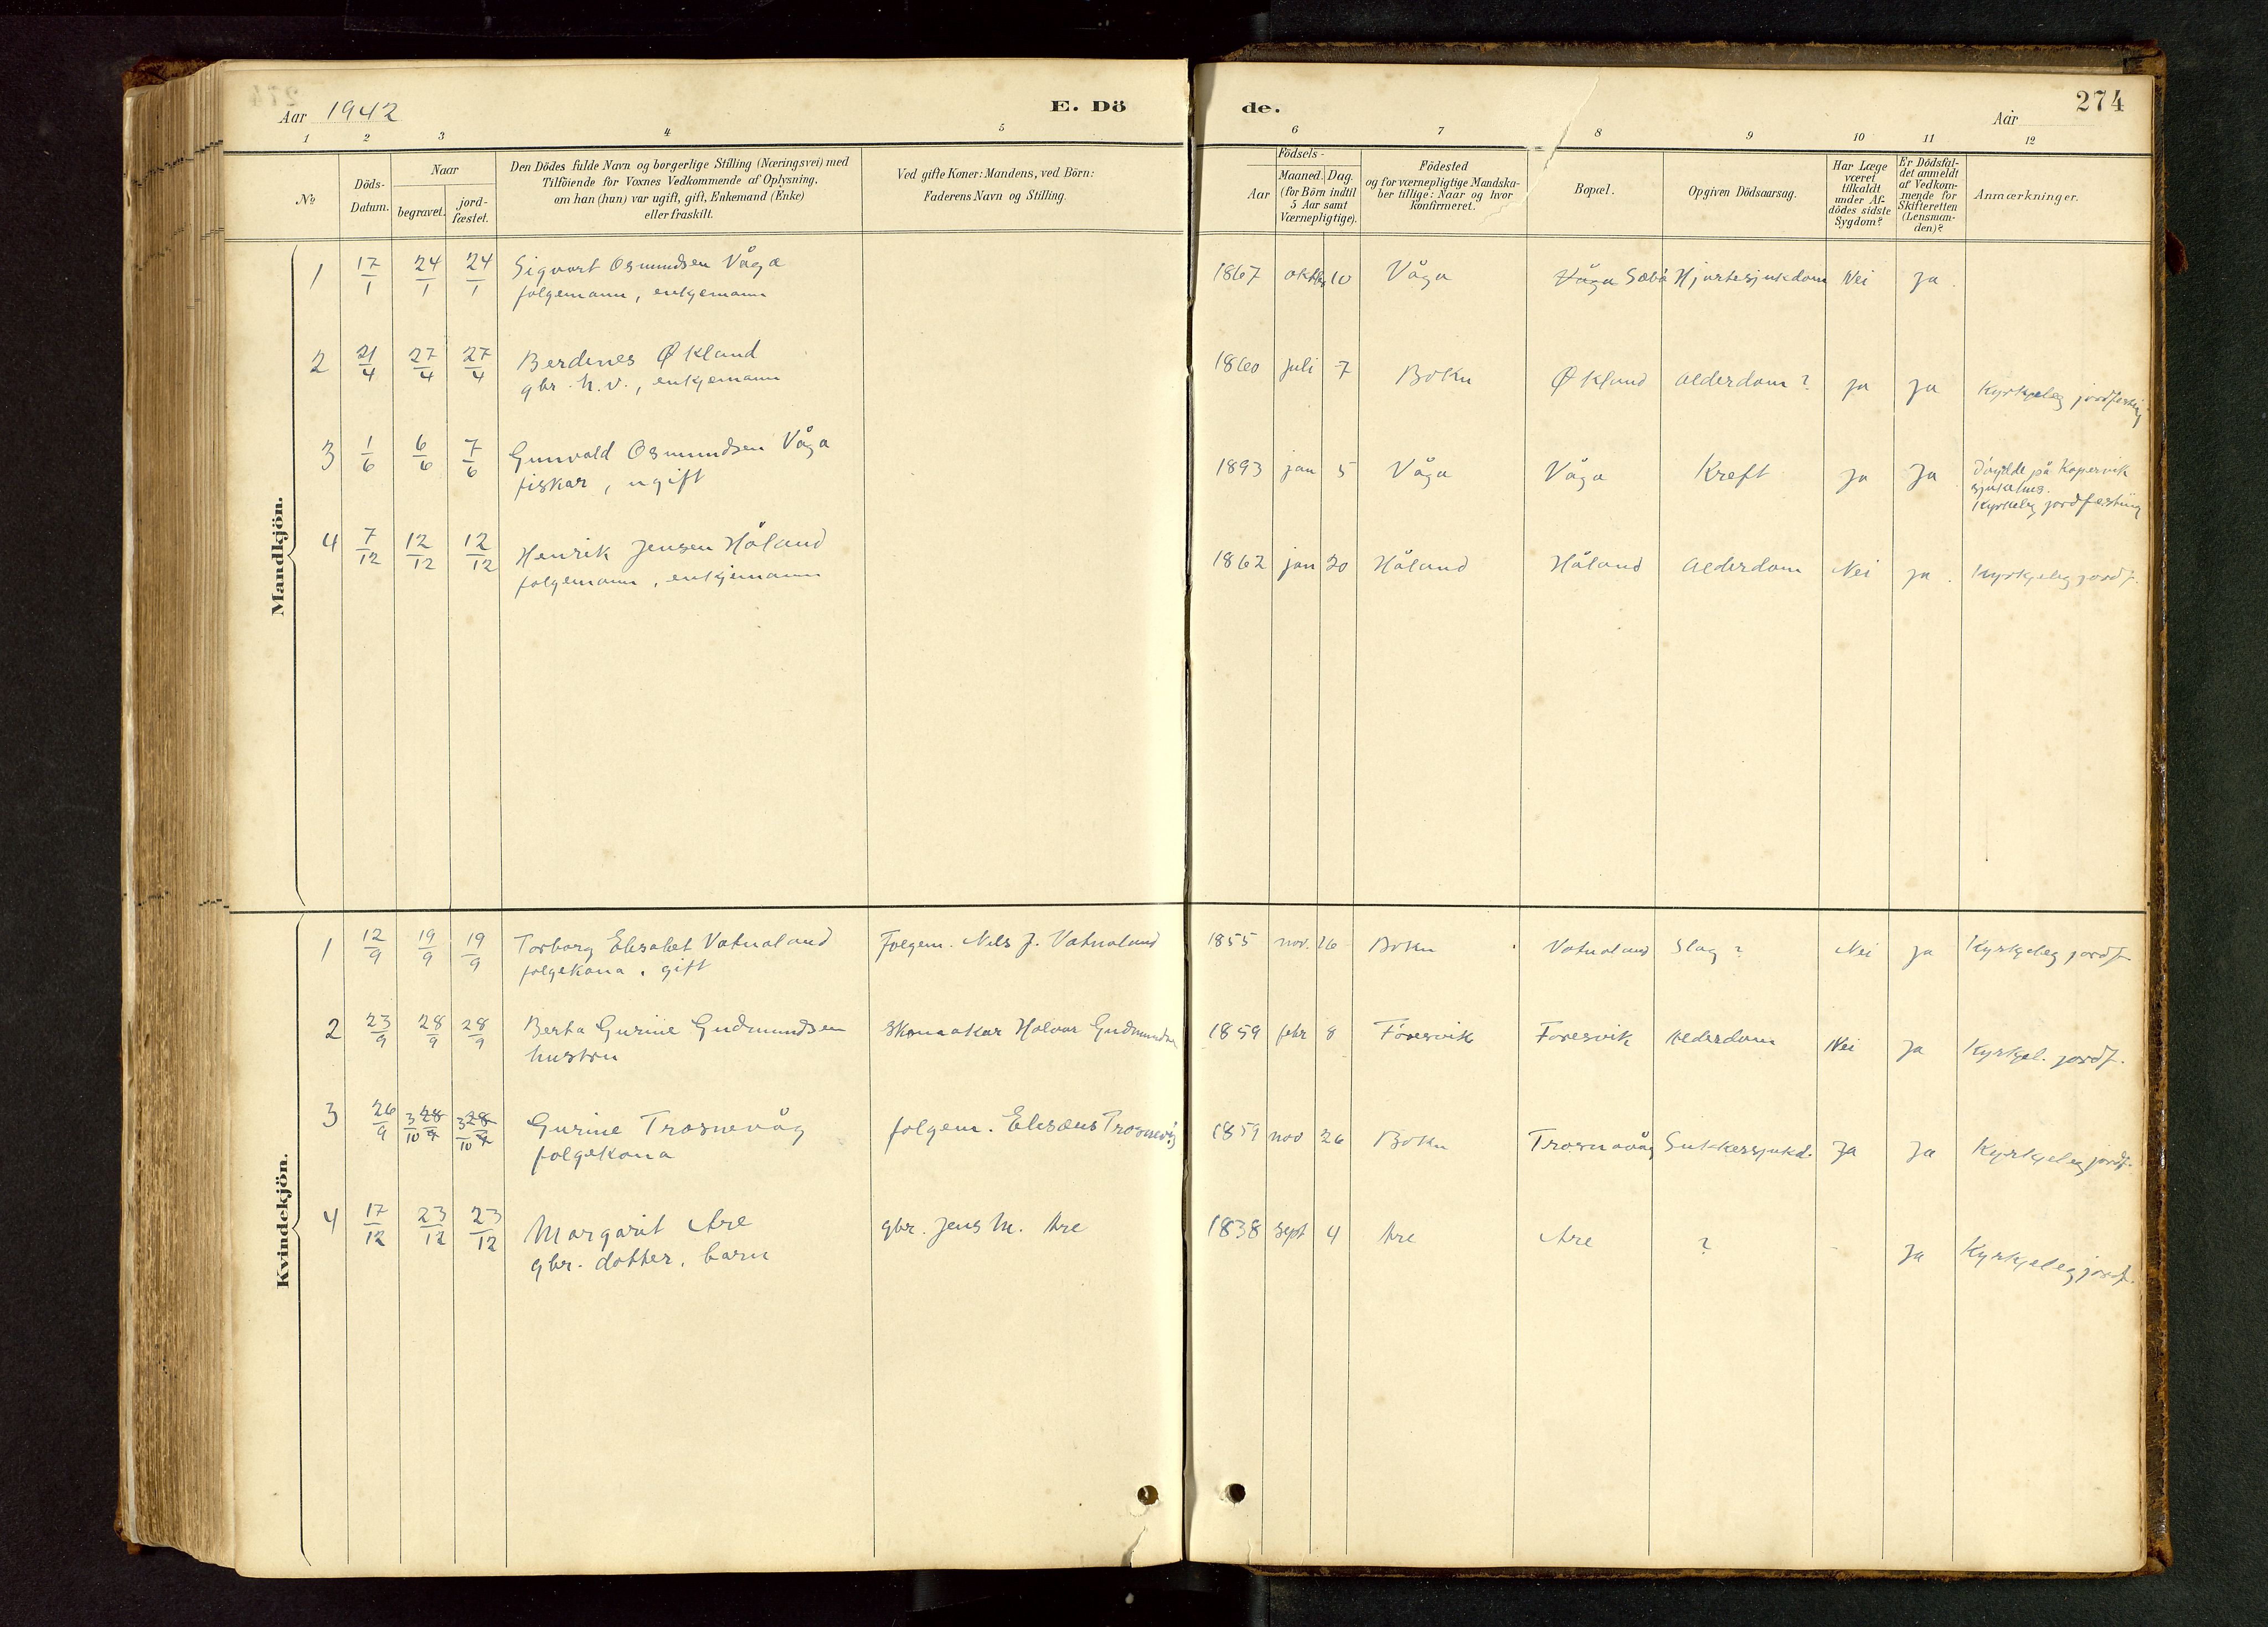 Aar 1942
E. Dö
de.
Aar
274
1 2 3 4 5 6 7 8 9 10 11 12
No
Döds-
Datum.
Naar
begravet.
jord-
fæstet.
Den Dödes fulde Navn og borgerlige Stilling (Næringsvei) med
Tilföiende for Voxnes Vedkommende af Oplysning,
om han (hun) var ugift, gift, Enkemand (Enke)
eller fraskilt.
Ved gifte Koner: Mandens, ved Börn:
Faderens Navn og Stilling.
Födsels-
Aar
Maaned. Dag.
(for Börn indtil
5 Aar samt
Værnepligtige).
Födested
og for værnepligtige Mandska-
ber tillige: Naar og hvor
konfirmeret.
Bopæl.
Opgiven Dödsaarsag.
Har Læge
været
tilkaldt
under Af-
dödes sidste
Sygdom?
Er Dödsfal-
det anmeldt
af Vedkom-
mende for
Skifteretten
(Lensman-
den)?
Anmærkninger.
Mandkjön.
1 17/1 24/1 24/1 Sigvart Osmundsen Våga
folgemann, enkjemann
1867 10 Våga Våga Sæbö Hjartesjukdom Nei Ja.
2 21/4 27/4 27/4 Berdines Økland
gbr. h.v., enkjemann
1860 juli 7 Bokn Økland Alderdom? Ja Ja Kyrkjeleg jordfesting
3 1/6 6/6 7/6 Gunvald Osmundsen Våga
fiskar, ugift
1893 jan 5 Våga Våga Kreft Ja Ja Döydde på Kopervik
sjukehus.
Kyrkjeleg jordfesting
4 7/12 12/12 12/12 Henrik Jensen Håland
folgemann, enkjemann
1862 jan 20 Håland Håland Alderdom Nei Ja. Kyrkjeleg jordf.
Kvindekjön.
1 12/9 19/9 19/9 Torborg Elisabet Vatnaland
folgekona, gift
Folgem. Nils J. Vatnaland
1855 nov. 16 Bokn Vatnaland Slag? Nei Ja Kyrkjeleg jordf.
2 23/9 28/9 28/9 Berta Gurine Gudmundsen
hustru
Skomakar Halvor Gudmundsen
1859 febr 8 Føresvik Føresvik Alderdom Nei Ja Kyrkjel. jordf.
3 26/9 3/10 28/9 3/10 28/9 Gurine Trosnevåg
folgekona
folgem. Elisæus Trosnevåg
1859 nov 26 Bokn Trosnavåg Sukkersjukd. Ja Ja Kyrkjeleg jordf.
4 17/12 23/12 23/12 Margarit Are
gbr. dotter, barn
gbr. Jens M. Are
1838 sept 4 Are Are ? - Ja Kyrkjeleg jordf.